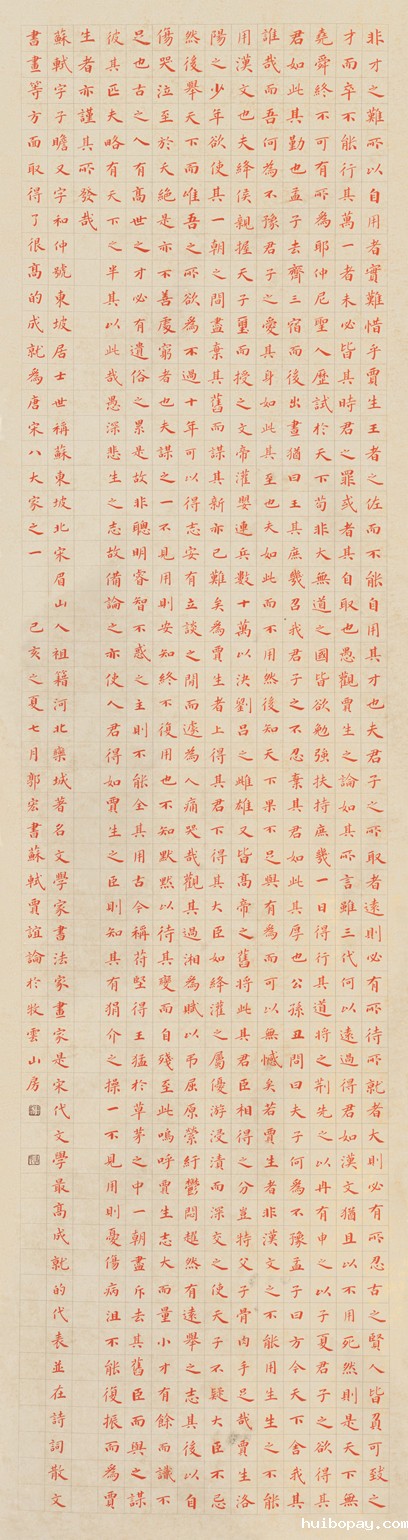 非才之難所以自用者實難惜乎賈生王者之佐而不能自用其才也夫君子之所取者遠則必有所待所就者大則必有所忍古之賢人皆負可致之
才而卒不能行其萬一者未必皆其時君之罪或者其自取也愚觀賈生之論如其所言雖三代何以遠過得君如漢文猶且以不用死然則是天下無
堯舜終不可有所為耶仲尼聖人歷試於天下苟非大無道之國皆欲勉強扶持庶幾一日得行其道將之荊先之以冉有申之以子夏君子之欲得其
君如此其勤也孟子去齊三宿而後出晝猶曰王其庶幾召我君子之不忍棄其君如此其厚也公孫丑問曰夫子何為不豫孟子曰方今天下舍我其
誰哉而吾何為不豫君子之愛其身如此其至也夫如此而不用然後知天下果不足與有為而可以無憾矣若賈生者非漢文之不能用生生之不能
用漢文也夫絳侯親握天子璽而授之文帝灌嬰連兵數十萬以決劉呂之雌雄又皆高帝之舊將此其君臣相得之分豈特父子骨肉手足哉賈生洛
陽之少年欲使其一朝之間盡棄其舊而謀其新亦已難矣為賈生者上得其君下得其大臣如絳灌之屬優游浸漬而深交之使天子不疑大臣不忌
然後舉天下而唯吾之所欲為不過十年可以得志安有立談之間而遽為人痛哭哉觀其過湘為賦以弔屈原縈紆鬱悶越然有遠舉之志其後以自
傷哭泣至於夭絕是亦不善處窮者也夫謀之一不見用則安知終不復用也不知默默以待其變而自殘至此嗚呼賈生志大而量小才有餘而識不
足也古之人有高世之才必有遺俗之累是故非聰明睿智不惑之主則不能全其用古今稱苻堅得王猛於草茅之中一朝盡斥去其舊臣而與之謀
彼其匹夫略有天下之半其以此哉愚深悲生之志故備論之亦使人君得如賈生之臣則知其有狷介之操一不見用則憂傷病沮不能復振而為賈
生者亦謹其所發哉
蘇軾字子瞻又字和仲號東坡居士世稱蘇東坡北宋眉山人祖籍河北欒城著名文學家書法家畫家是宋代文學最高成就的代表並在詩詞散文
書畫等方面取得了很高的成就為唐宋八大家之一 己亥之夏七月郭宏書蘇軾賈誼論於牧雲山房
huibopay.com